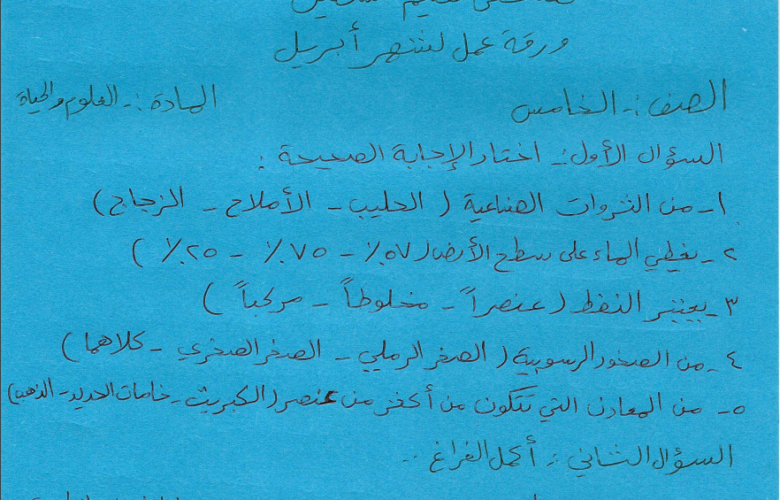 ورقة عمل لشهر أبريل
الصف :- الخامس المادة :- العلوم والحياة
السؤال الأول :- اختار الإجابة الصحيحة :
١- من الثروات الصناعية ( الحليب - الأملاح - الزجاج )
٢- يغطي الماء على سطح الأرض ( ٥٧٪ - ٧٥٪ - ٢٥٪ )
٣- يعتبر النفط ( عنصراً - مخلوطاً - مركباً )
٤- من الصخور الرسوبية ( الصخر الرملي - الصخر الصخري - كلاهما )
٥- من المعادن التي تتكون من أكثر من عنصر ( الكبريت - خامات الحديد - الذهب )
السؤال الثاني :- أكمل الفراغ ..